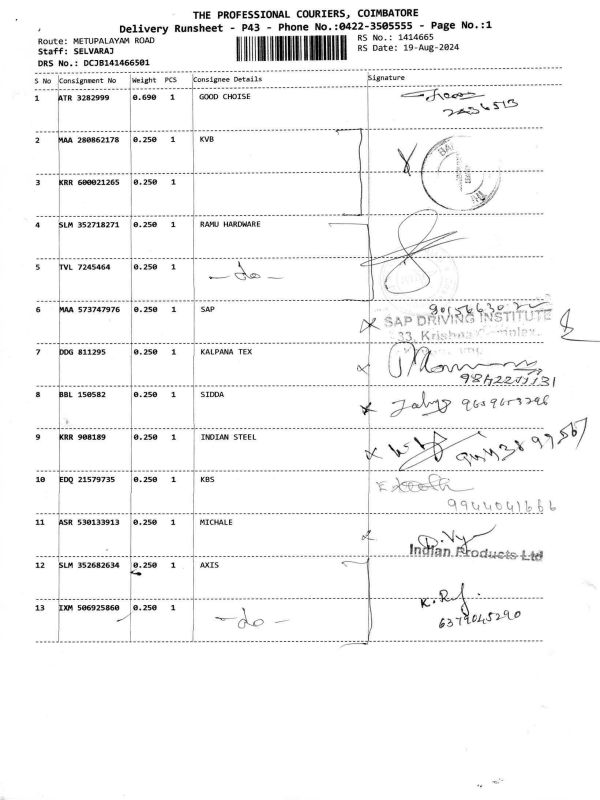 THE PROFESSIONAL COURIERS, COIMBATORE
Delivery Runsheet - P43 - Phone No.:0422-3505555 - Page No.:1
Route: METUPALAYAM ROAD
RS No.: 1414665
Staff: SELVARAJ
RS Date: 19-Aug-2024
DRS No.: DCJB141466501
S No Consignment No Weight PCS Consignee Details Signature
1 ATR 3282999 0.690 1 GOOD CHOISE
2 MAA 280862178 0.250 1 KVB
3 KRR 600021265 0.250 1
4 SLM 352718271 0.250 1 RAMU HARDWARE
5 TVL 7245464 0.250 1 -do-
6 MAA 573747976 0.250 1 SAP
SAP DRIVING INSTITUTE
33, Krishna Complex.
7 DDG 811295 0.250 1 KALPANA TEX
8 BBL 150582 0.250 1 SIDDA
9 KRR 908189 0.250 1 INDIAN STEEL
10 EDQ 21579735 0.250 1 KBS
9944041666
11 ASR 530133913 0.250 1 MICHALE
Indian Products Ltd
12 SLM 352682634 0.250 1 AXIS
13 IXM 506925860 0.250 1 -do-
6379045290